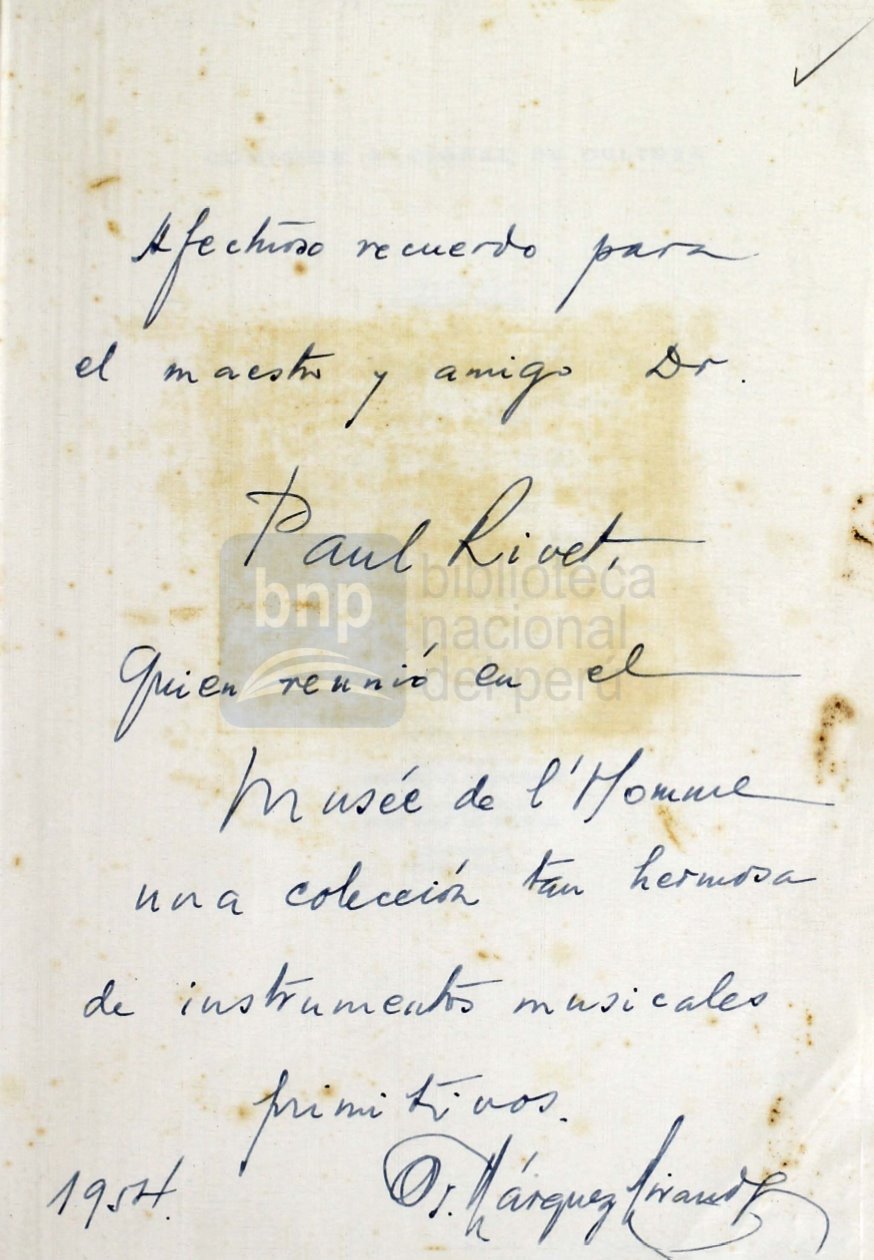 Afectuoso recuerdo para
el maestro y amigo Dr.
Paul Rivet,
quien reunió en el
Musée de l'Homme
una colección tan hermosa
de instrumentos musicales
primitivos.
1954.
Márquez Miranda
bnp biblioteca
nacional
del perú